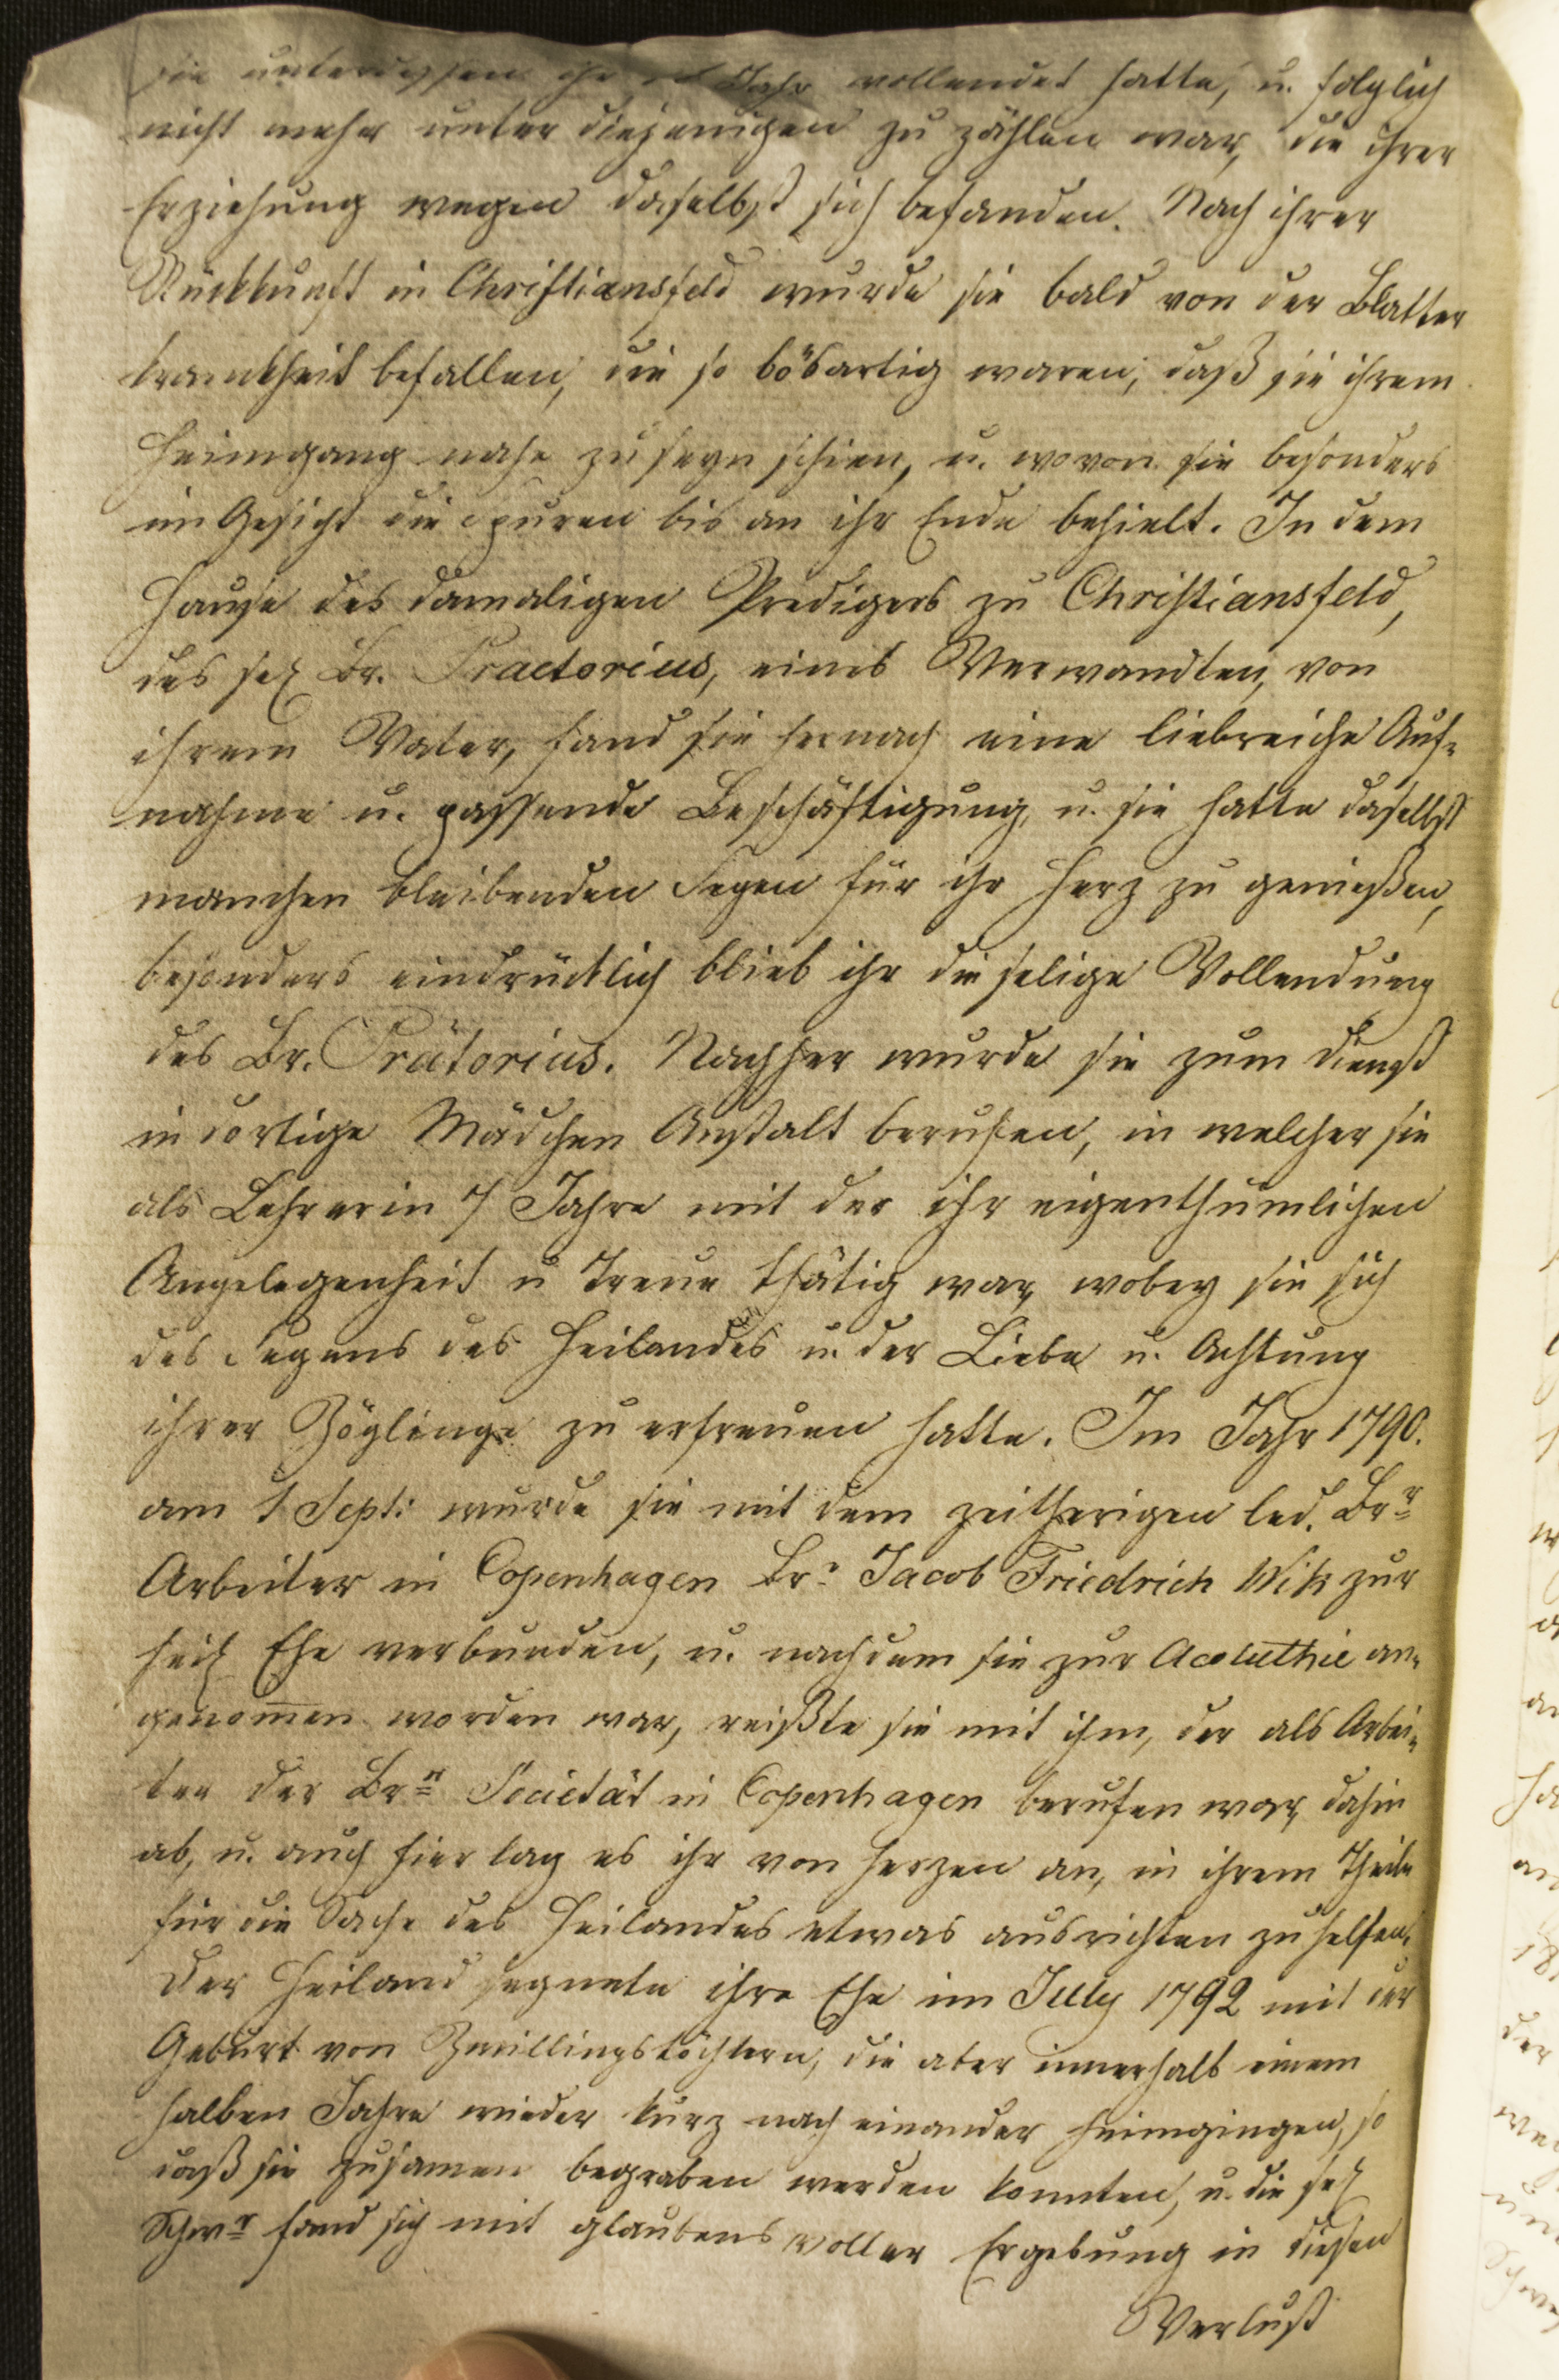 sie unterdessen ihr Jahr vollendet hatte, u. folglich
nicht mehr unter diejenigen zu zählen war, die ihrer
Erziehung wegen daselbst sich befanden. Nach ihrer
Rückkunft in Christiansfeld wurde sie bald von der Blatter
krankheit befallen, die so bösartig waren, daß sie ihrem
Heimgang nahe zu seyn schien, u. wovon sie besonders
im Gesicht die Spuren bis an ihr Ende behielt. In dem
Hause des damaligen Predigers zu Christiansfeld,
des sel. Br. Praetorius, eines Verwandten, von
ihrem Vater, fand sie hernach eine liebreiche Auf-
nahme u. passende Beschäftigung, u. sie hatte daselbst
manchen bleibenden Segen für ihr Herz zu genießen,
besonders eindrücklich blieb ihr die selige Vollendung
des Br. Prätorius. Nachher wurde sie zum Dienst
in dortige Mädchen Anstalt berufen, in welcher sie
als Lehrerin 7 Jahre mit der ihr eigenthümlichen
Angelegenheit u Treue thätig war, wobey sie sich
des Segens des Heilandes u. der Liebe u. Achtung
ihrer Zöglinge zu erfreuen hatte. Im Jahr 1790.
am 1 Sept: wurde sie mit dem zeitherigen led. Brr
Arbeiter in Copenhagen Br. Jacob Friedrich Wik zur
heil Ehe verbunden, u. nachdem sie zur Acoluthie an-
genom̅en worden war, reißte sie mit ihm, der als Arbei-
ter der Brn Societät in Copenhagen berufen war, dahin
ab, u. auch hier lag es ihr von Herzen an, in ihrem Theile
für die Sache des Heilandes etwas ausrichten zu helfen.
Der Heiland segnete ihre Ehe im July 1792 mit der
Geburt von Zwillingstöchtern, die aber innerhalb einem
halben Jahre wieder kurz nach einander heimgingen, so
daß sie zusamen begraben werden konnten, u. die sel
Schwr fand sich mit glaubensvoller Ergebung in diesen
Verlust